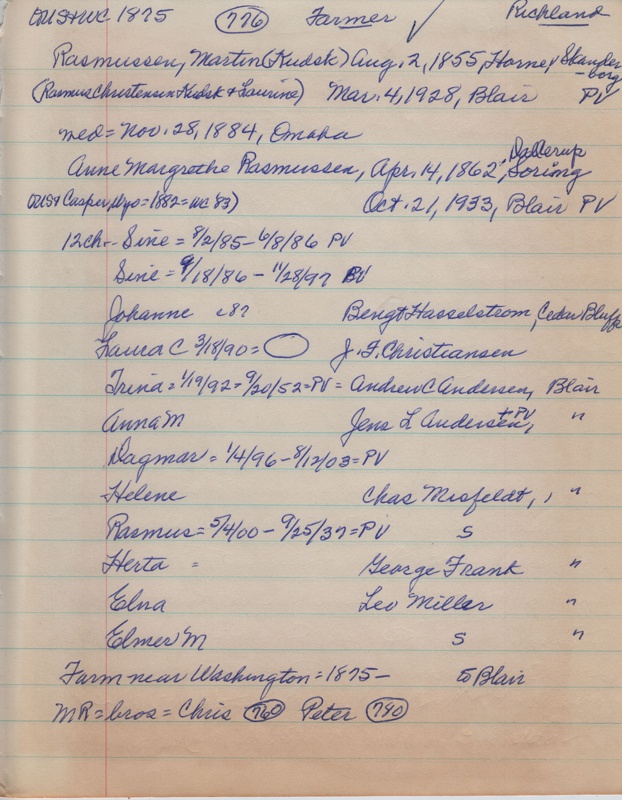 DUS+WC 1875 (776) Farmer ✓ Richland
Rasmussen, Martin (Kudsk) Aug. 2, 1855, Horne, Skander-
borg
(Rasmus Christensen Kudsk + Laurine) Mar. 4, 1928, Blair PV
med = Nov. 28, 1884, Omaha
Anne Margrethe Rasmussen, Apr. 14, 1862, Dallerup
Soring
(DUS+ Casper, Wyo = 1882 = WC '83) Oct. 21, 1933, Blair PV
12ch - Sine = 8/2/85 - 6/8/86 PV
Sine = 9/18/86 - 11/28/97 BV
Johanne c87 Bengt Hasselstrom, Cedar Bluffs
Laura C 3/18/90 = J. F. Christiansen
Trina = 1/19/92 = 9/20/52 = PV = Andrew C Andersen, Blair
Anna M Jens L Andersen, + PV "
Dagmar = 1/4/96 - 8/12/03 = PV
Helene Chas Misfeldt, , "
Rasmus = 5/4/00 - 9/25/37 = PV S
Herta = George Frank "
Elna Leo Miller "
Elmer M S "
Farm near Washington = 1875 - to Blair
MR = bros = Chris (760) Peter (740)